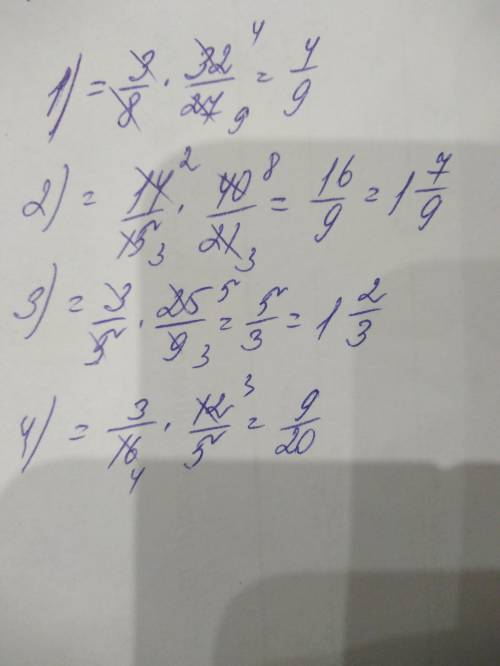 1) = 3/8 · 32 4/27 9 = 4/9
2) = 14 2/15 3 · 40 8/21 3 = 16/9 = 1 7/9
3) = 3/5 · 25 5/9 3 = 5/3 = 1 2/3
4) = 3/16 4 · 12 3/5 = 9/20